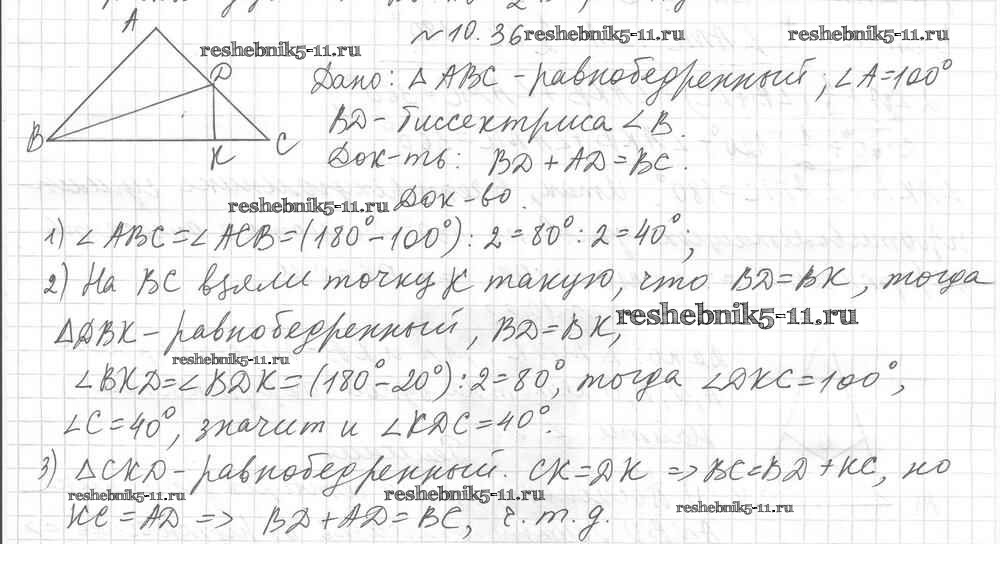 A
B
D
K
C
reshebnik5-11.ru
№ 10.36 reshebnik5-11.ru reshebnik5-11.ru
Дано: △ ABC - равнобедренный, ∠A=100°
BD - биссектриса ∠B.
Док-ть: BD + AD = BC.
reshebnik5-11.ru Док-во.
1) ∠ABC=∠ACB=(180°-100°):2=80°:2=40°;
2) На BC взяли точку K такую, что BD=BK, тогда
△DBK - равнобедренный, BD=BK, reshebnik5-11.ru
reshebnik5-11.ru
∠BKD=∠BDK=(180°-20°):2=80°, тогда ∠DKC=100°,
∠C=40°, значит и ∠KDC=40°.
3) △CKD - равнобедренный. CK=DK => BC=BD+KC, но
reshebnik5-11.ru reshebnik5-11.ru reshebnik5-11.ru
KC=AD => BD+AD=BC, ч.т.д.